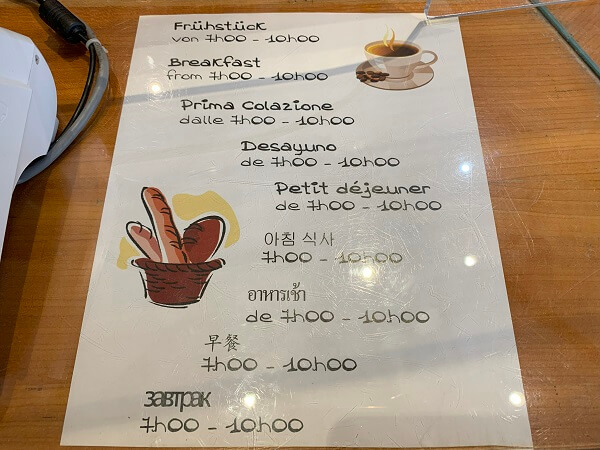 Frühstück
von 7h00 - 10h00
Breakfast
from 7h00 - 10h00
Prima Colazione
dalle 7h00 - 10h00
Desayuno
de 7h00 - 10h00
Petit déjeuner
de 7h00 - 10h00
아침 식사
7h00 - 10h00
อาหารเช้า
de 7h00 - 10h00
早餐
7h00 - 10h00
завтрак
7h00 - 10h00